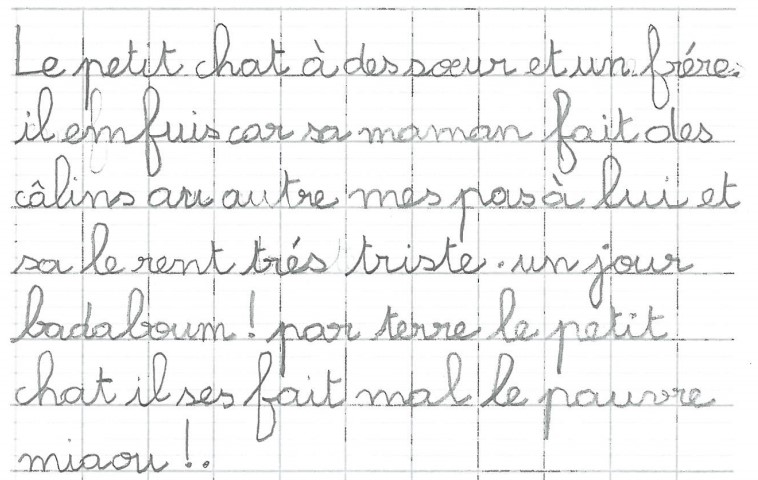 Le petit chat à des sœur et un frére.
il emfuis car sa maman fait des
câlins au autre mes pas à lui et
sa le rent trés triste. un jour
badaboum ! par terre le petit
chat il ses fait mal le pauvre
miaou !.